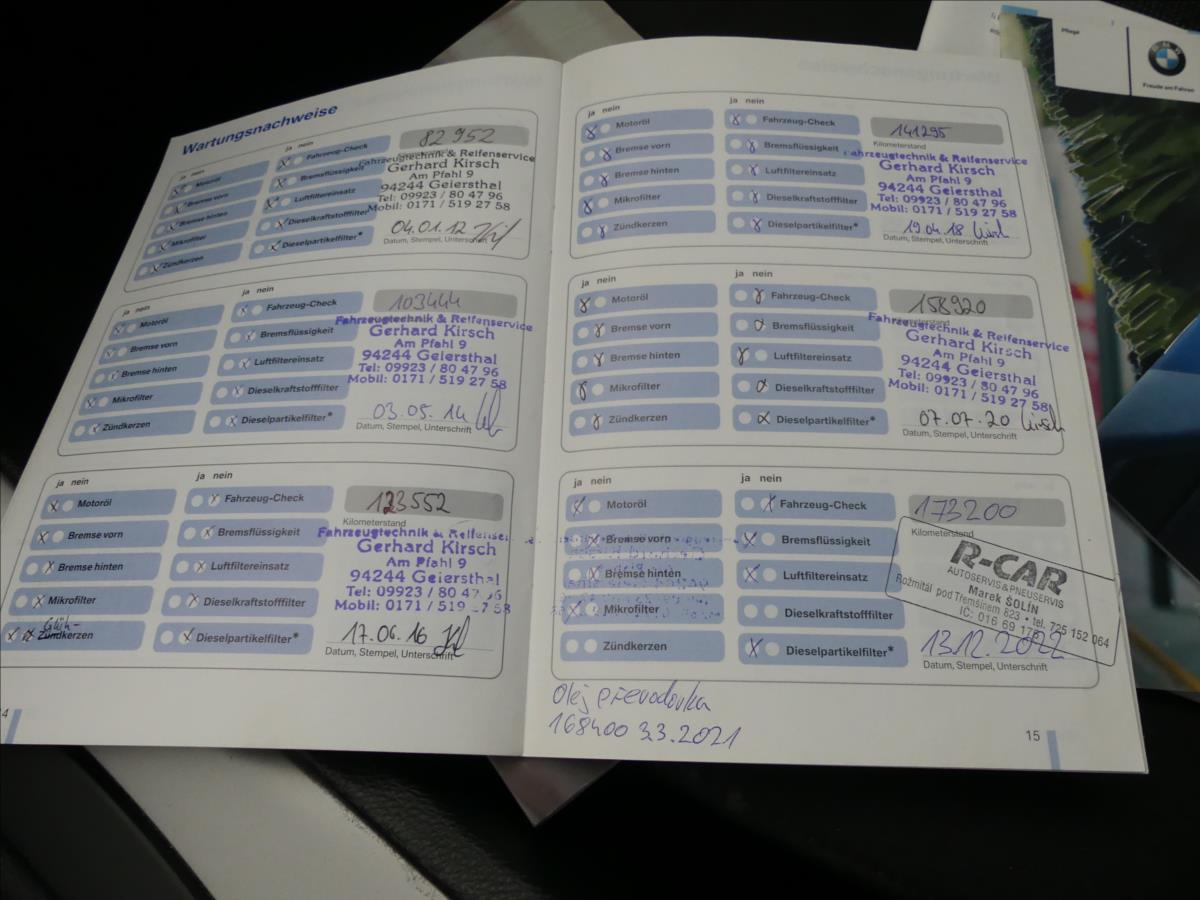 Wartungsnachweise
ja nein
Motoröl
Bremse vorn
Bremse hinten
Mikrofilter
Zündkerzen
ja nein
Fahrzeug-Check
Bremsflüssigkeit
Luftfiltereinsatz
Dieselkraftstofffilter
Dieselpartikelfilter*
82952
Fahrzeugtechnik & Reifenservice
Gerhard Kirsch
Am Pfahl 9
94244 Geiersthal
Tel: 09923 / 80 47 96
Mobil: 0171 / 519 27 58
04.01.12
Datum, Stempel, Unterschrift
ja nein
Motoröl
Bremse vorn
Bremse hinten
Mikrofilter
Zündkerzen
ja nein
Fahrzeug-Check
Bremsflüssigkeit
Luftfiltereinsatz
Dieselkraftstofffilter
Dieselpartikelfilter*
103444
Fahrzeugtechnik & Reifenservice
Gerhard Kirsch
Am Pfahl 9
94244 Geiersthal
Tel: 09923 / 80 47 96
Mobil: 0171 / 519 27 58
03.05.14
Datum, Stempel, Unterschrift
ja nein
Motoröl
Bremse vorn
Bremse hinten
Mikrofilter
Glüh-
Zündkerzen
ja nein
Fahrzeug-Check
Bremsflüssigkeit
Luftfiltereinsatz
Dieselkraftstofffilter
Dieselpartikelfilter*
123552
Kilometerstand
Fahrzeugtechnik & Reifenser
Gerhard Kirsch
Am Pfahl 9
94244 Geiersthal
Tel: 09923 / 80 47 96
Mobil: 0171 / 519 27 58
17.06.16
Datum, Stempel, Unterschrift
ja nein
Motoröl
Bremse vorn
Bremse hinten
Mikrofilter
Zündkerzen
ja nein
Fahrzeug-Check
Bremsflüssigkeit
Luftfiltereinsatz
Dieselkraftstofffilter
Dieselpartikelfilter*
141295
Kilometerstand
Fahrzeugtechnik & Reifenservice
Gerhard Kirsch
Am Pfahl 9
94244 Geiersthal
Tel: 09923 / 80 47 96
Mobil: 0171 / 519 27 58
19.04.18 Kirsch
Datum, Stempel, Unterschrift
ja nein
Motoröl
Bremse vorn
Bremse hinten
Mikrofilter
Zündkerzen
ja nein
Fahrzeug-Check
Bremsflüssigkeit
Luftfiltereinsatz
Dieselkraftstofffilter
Dieselpartikelfilter*
158920
Fahrzeugtechnik & Reifenservice
Gerhard Kirsch
Am Pfahl 9
94244 Geiersthal
Tel: 09923 / 80 47 96
Mobil: 0171 / 519 27 58
07.07.20 Kirsch
Datum, Stempel, Unterschrift
ja nein
Motoröl
Bremse vorn
Bremse hinten
Mikrofilter
Zündkerzen
ja nein
Fahrzeug-Check
Bremsflüssigkeit
Luftfiltereinsatz
Dieselkraftstofffilter
Dieselpartikelfilter*
173200
Kilometerstand
R-CAR
AUTOSERVIS & PNEUSERVIS
Marek ŠOLÍN
Rožmitál pod Třemšínem 823 • tel. 725 152 064
IČ: 016 69 17
13.12.2022
Datum, Stempel, Unterschrift
Olej převodovka
168400 3.3.2021
15
Pflege
BMW
Freude am Fahren